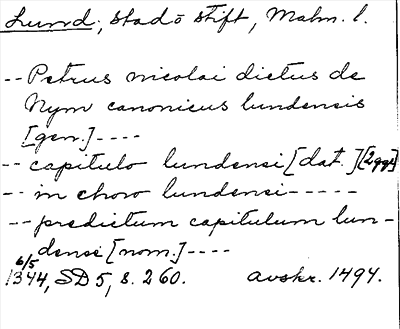 Lund, stad o stift, Malm. l.
-- Petrus nicolai dictus de
Nym canonicus lundensis
[gen.] ----
-- capitulo lundensi [dat.] [2ggr]
-- in choro lundensi -----
-- predictum capitulum lun-
dense [nom.] ----
6/5
1344, SD 5, s. 260. avskr. 1494.